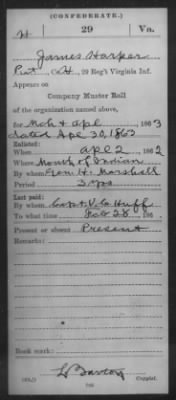 (CONFEDERATE.)
H 29 Va.
James Harper
Pvt, Co. H, 29 Reg't Virginia Inf.
Appears on
Company Muster Roll
of the organization named above,
for Mch & Apl, 1863
dated Apl 30, 1863
Enlisted:
When Apl 2, 1862
Where Mouth of Indian
By whom Gen. H. Marshall
Period 3 yrs
Last paid:
By whom Capt. V. C. Huff
To what time Feb 28, 186
Present or absent Present
Remarks:
Book mark:
Barton
Copyist.